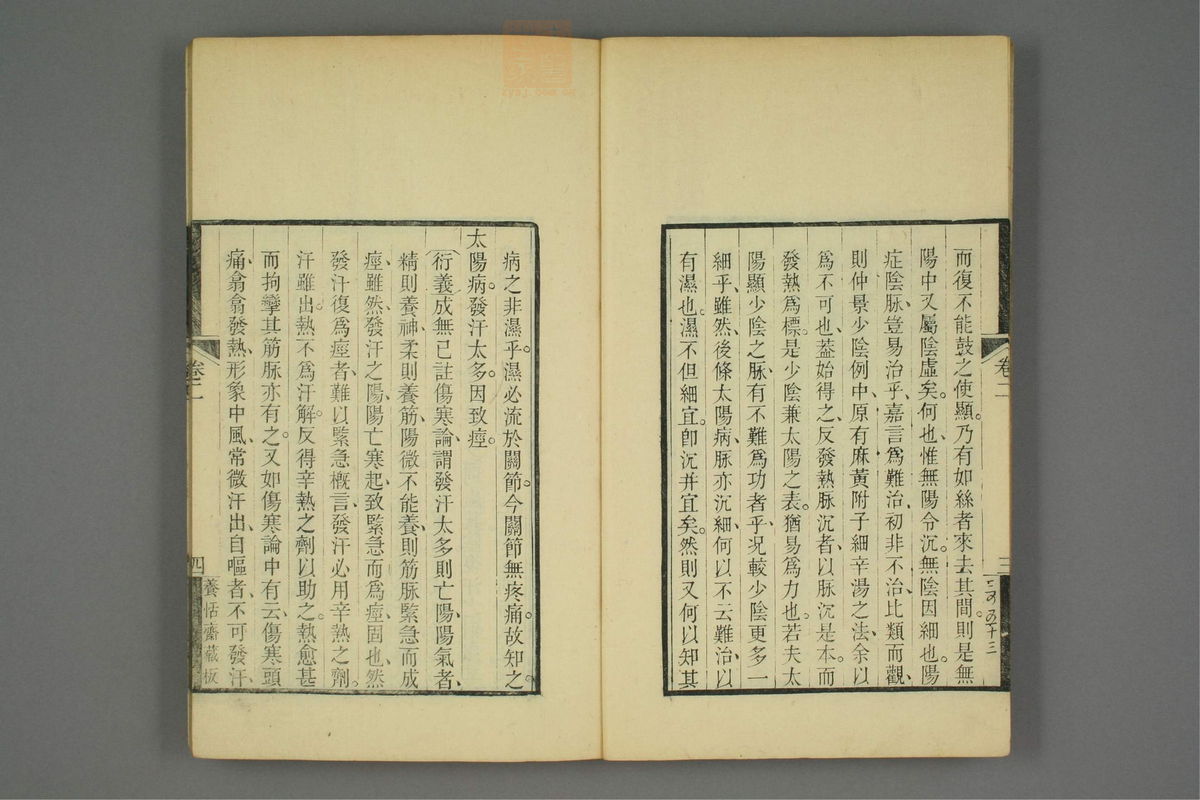 而復不能鼓之使顯。乃有如絲者來去其間。則是無
陽中又屬陰虛矣。何也、惟無陽令沉。無陰因細也。陽
症陰脉、豈易治乎、嘉言爲難治、初非不治比類而觀、
則仲景少陰例中、原有麻黃附子細辛湯之法、余以
爲不可也、葢始得之、反發熱脉沉者、以脉沉是本。而
發熱爲標。是少陰兼太陽之表。猶易爲力也。若夫太
陽顯少陰之脉、有不難爲功者乎、况較少陰更多一
細乎、雖然、後條太陽病、脉亦沉細、何以不云難治、以
有濕也。濕不但細宜。卽沉并宜矣。然則又何以知其
卷二
三
病之非濕乎。濕必流於關節。今關節無疼痛。故知之。
太陽病。發汗太多。因致痙。
衍義成無已註傷寒論、謂發汗太多則亡陽、陽氣者、
精則養神、柔則養筋、陽微不能養、則筋脉緊急而成
痙、雖然、發汗之陽、陽亡寒起、致緊急而爲痙、固也、然
發汗復爲痙者、難以緊急概言、發汗必用辛熱之劑。
汗雖出。熱不爲汗解。反得辛熱之劑以助之。熱愈甚
而拘攣其筋脉亦有之。又如傷寒論中有云、傷寒頭
痛、翕翕發熱、形象中風、常微汗出、自嘔者、不可發汗、
卷二
四
養恬齋藏板